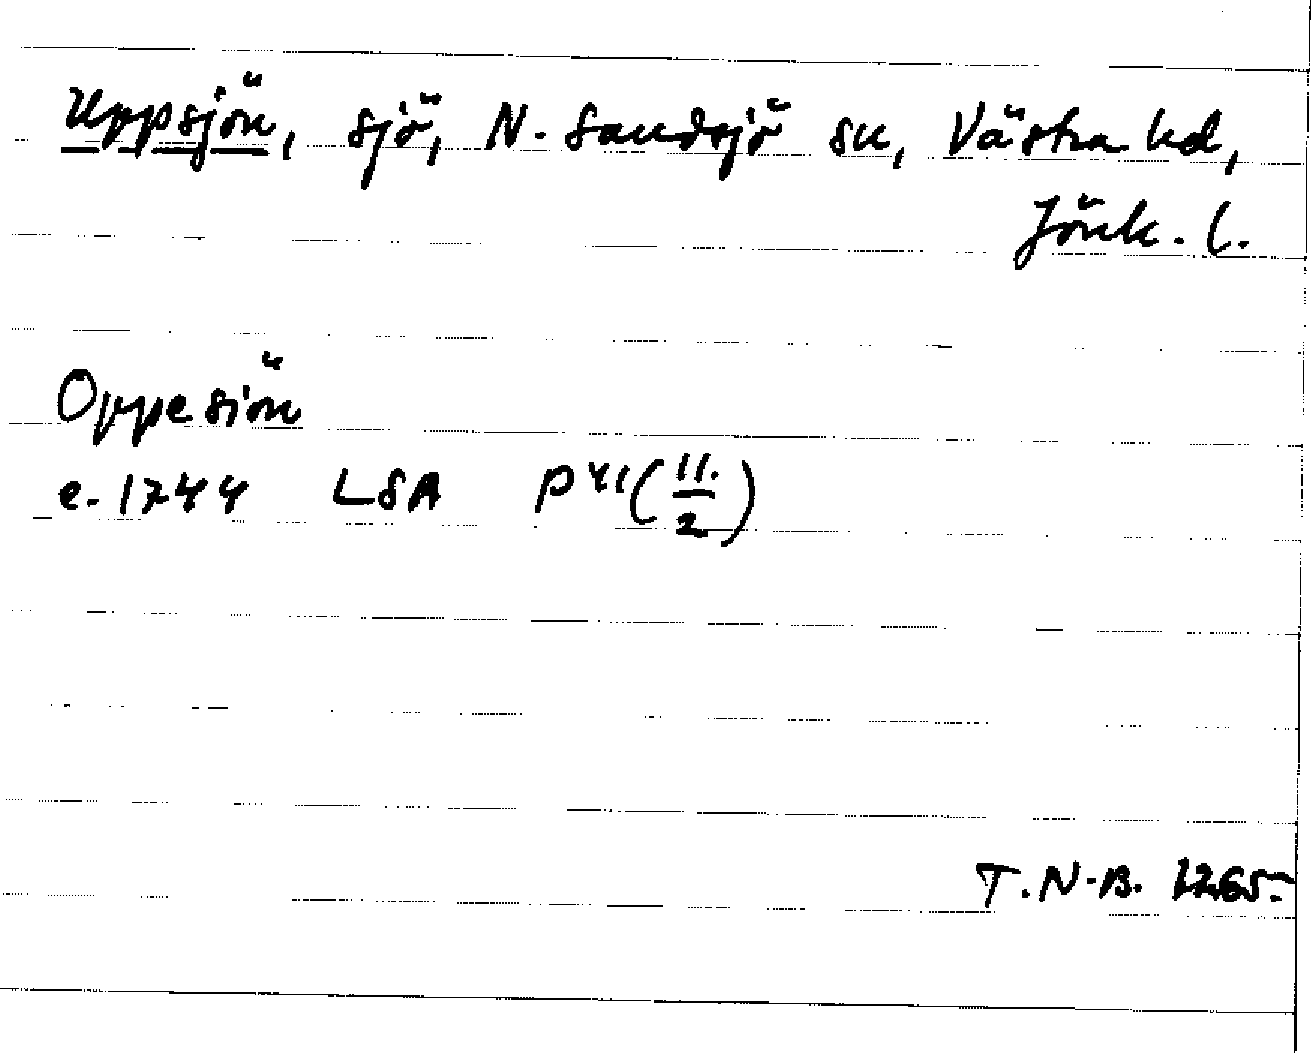 Uppsjön, sjö, N. Sandsjö sn, Västra hd,
Jönk. l.
Oppesiön
e. 1744 LSA P41(11./2)
T.N-B. 1265